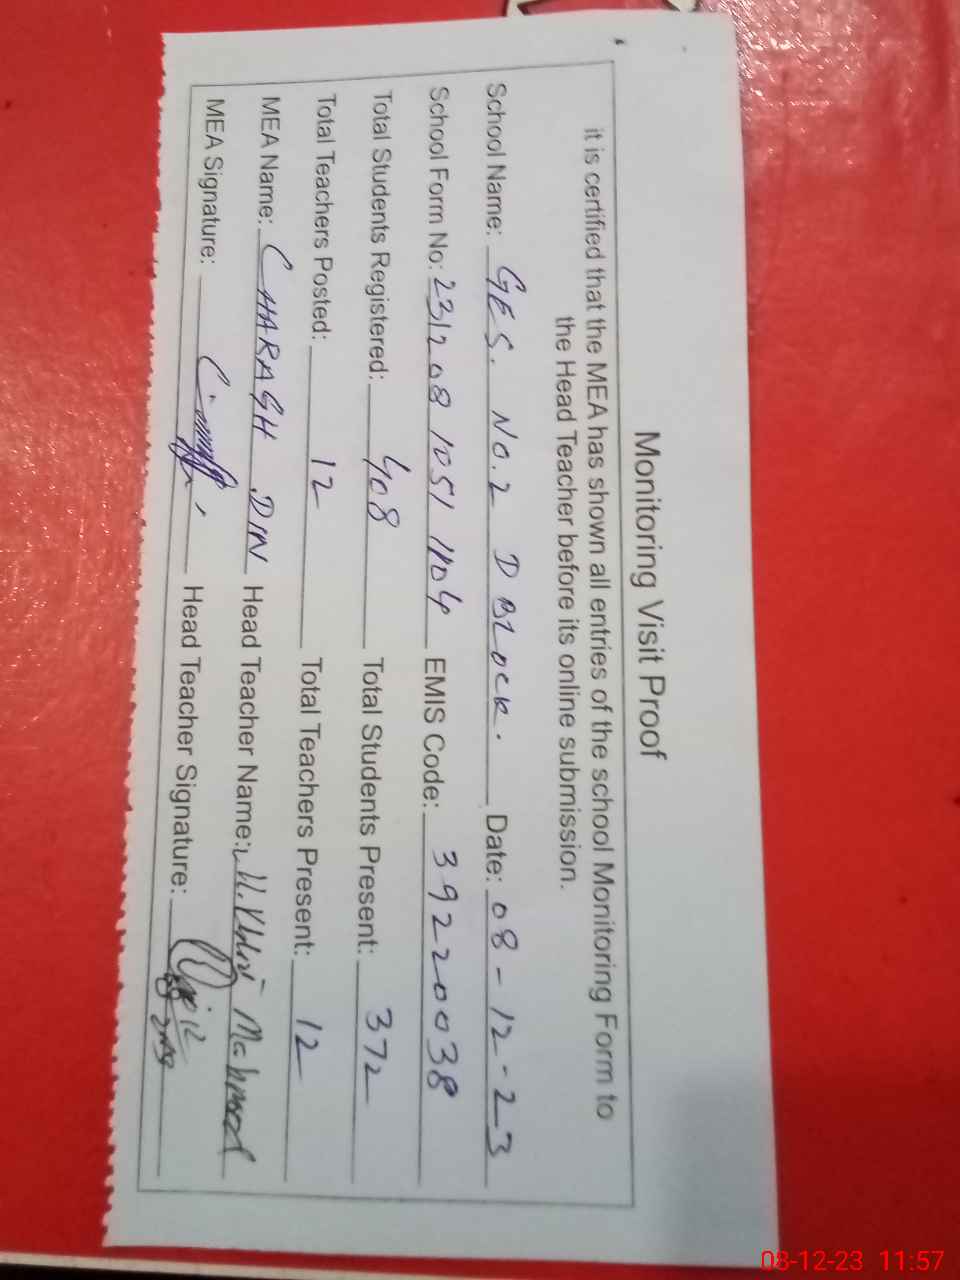 Monitoring Visit Proof
it is certified that the MEA has shown all entries of the school Monitoring Form to
the Head Teacher before its online submission.
School Name: GES. NO.2 D BLOCK. Date: 08-12-23
School Form No: 231208 1051 1804 EMIS Code: 39220038
Total Students Registered: 408 Total Students Present: 372
Total Teachers Posted: 12 Total Teachers Present: 12
MEA Name: CHARAGH DIN Head Teacher Name: Mahmood
MEA Signature: Head Teacher Signature:
08-12-23 11:57